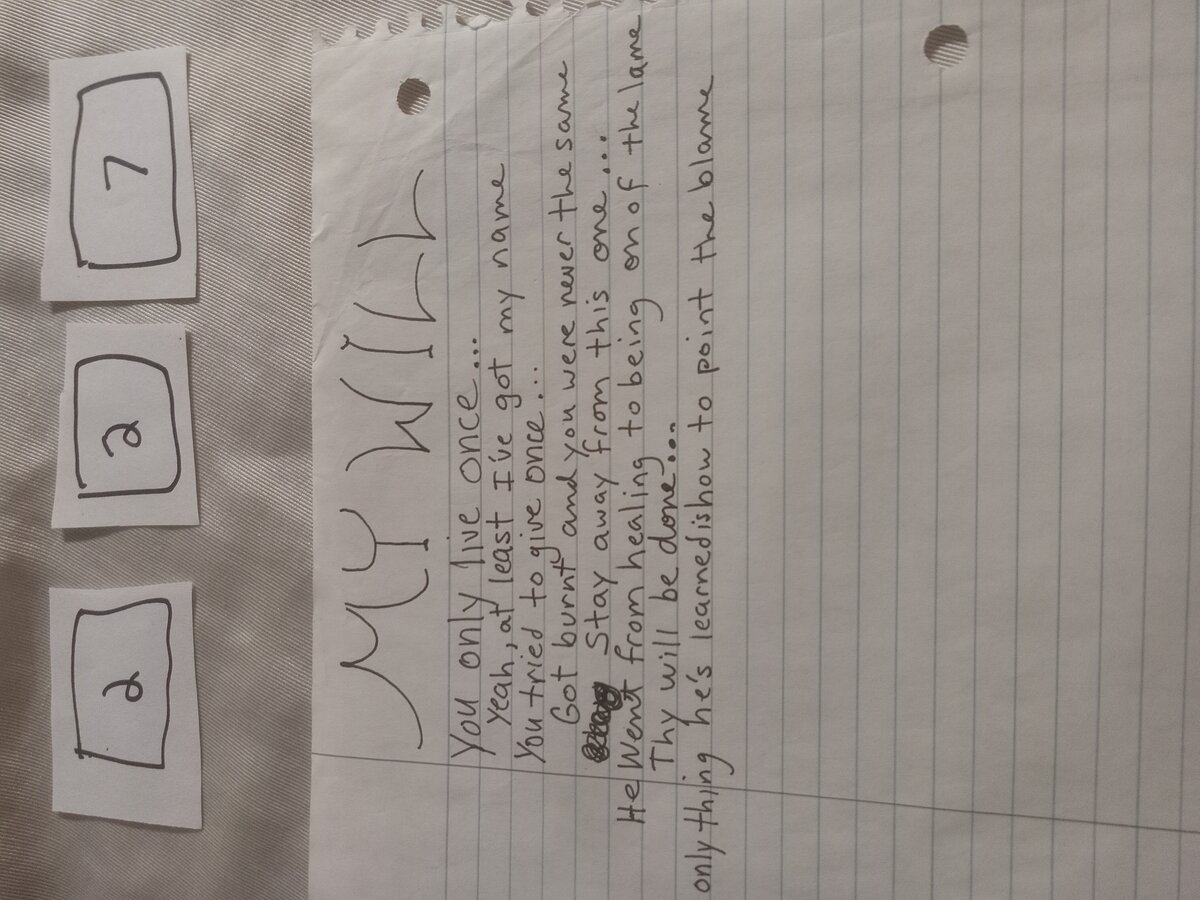 2 2 7
MY WILL
You only live once...
Yeah, at least I've got my name
You tried to give once...
Got burnt and you were never the same
Stay away from this one...
He Went from healing to being on of the lame
Thy will be done...
only thing he's learned is how to point the blame